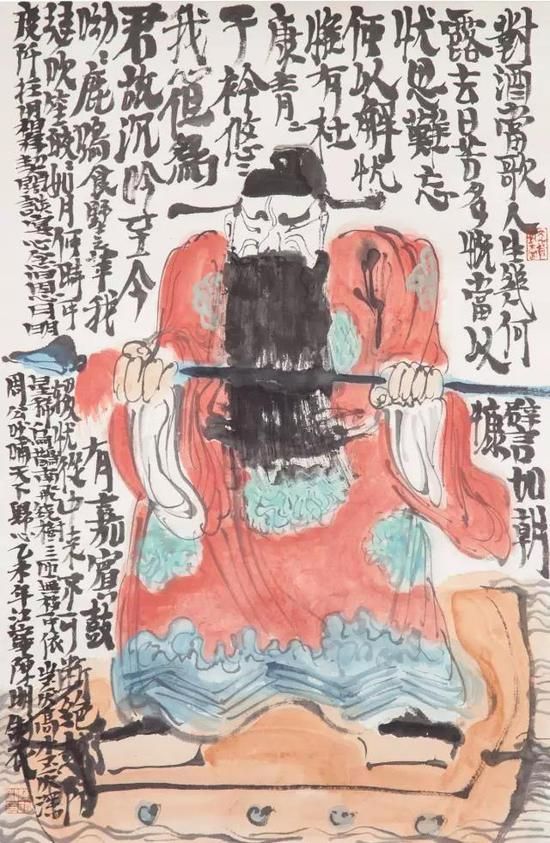 對酒當歌人生幾何
譬如朝
露去日苦多慨當以
慷
忧思難忘
何以解忧
惟有杜
康青〻
子衿悠〻
我心但為
君故沉吟至今
呦〻鹿鳴食野之苹我
有嘉賓鼓
瑟吹笙皎〻如月何時可
掇忧從中来不可断絶
度阡枉用相存契闊談讌心念旧恩月明
星稀烏鵲南飛繞樹三匝無枝可依
高水不深
周公吐哺天下歸心乙未年江蘇陳明